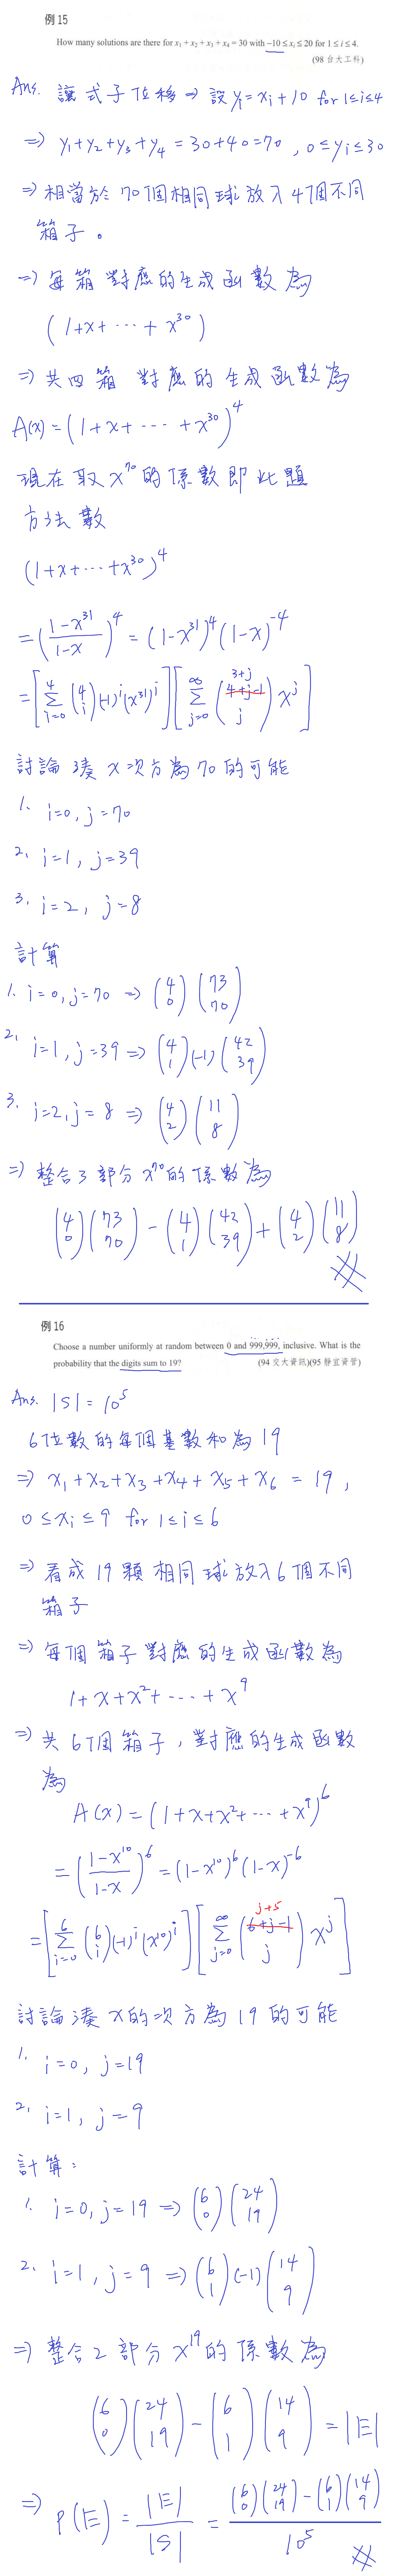 例 15
How many solutions are there for x₁ + x₂ + x₃ + x₄ = 30 with −10 ≤ xᵢ ≤ 20 for 1 ≤ i ≤ 4.
(98 台大工科)
Ans. 讓式子位移 ⇒ 設 yᵢ = xᵢ + 10 for 1≤i≤4
⇒ y₁+y₂+y₃+y₄ = 30+40=70 , 0≤yᵢ≤30
⇒ 相當於 70個相同球放入4個不同
箱子。
⇒ 每箱對應的生成函數為
(1+x+⋯+x³⁰)
⇒ 共四箱 對應的生成函數為
A(x) = (1+x+⋯+x³⁰)⁴
現在取 x⁷⁰ 的係數即此題
方法數
(1+x+⋯+x³⁰)⁴
= ((1-x³¹)/(1-x))⁴ = (1-x³¹)⁴(1-x)⁻⁴
= [∑_{i=0}^{4} (4 i)(-1)ⁱ(x³¹)ⁱ][∑_{j=0}^{∞} (3+j 4+j-1 j) xʲ]
討論湊 x 次方為70的可能
1. i=0, j=70
2. i=1, j=39
3. i=2, j=8
計算
1. i=0, j=70 ⇒ (4 0)(73 70)
2. i=1, j=39 ⇒ (4 1)(-1)(42 39)
3. i=2, j=8 ⇒ (4 2)(11 8)
⇒ 整合3部分 x⁷⁰ 的係數為
(4 0)(73 70) - (4 1)(42 39) + (4 2)(11 8)
例 16
Choose a number uniformly at random between 0 and 999,999, inclusive. What is the
probability that the digits sum to 19?
(94 交大資訊)(95 靜宜資管)
Ans. |S| = 10⁵
6位數的每個基數和為19
⇒ x₁+x₂+x₃+x₄+x₅+x₆ = 19,
0≤xᵢ≤9 for 1≤i≤6
⇒ 看成19顆相同球放入6個不同
箱子
⇒ 每個箱子對應的生成函數為
1+x+x²+⋯+x⁹
⇒ 共6個箱子, 對應的生成函數
為
A(x) = (1+x+x²+⋯+x⁹)⁶
= ((1-x¹⁰)/(1-x))⁶ = (1-x¹⁰)⁶(1-x)⁻⁶
= [∑_{i=0}^{6} (6 i)(-1)ⁱ(x¹⁰)ⁱ][∑_{j=0}^{∞} (j+5 6+j-1 j) xʲ]
討論湊 x的次方為19的可能
1. i=0, j=19
2. i=1, j=9
計算:
1. i=0, j=19 ⇒ (6 0)(24 19)
2. i=1, j=9 ⇒ (6 1)(-1)(14 9)
⇒ 整合2部分 x¹⁹ 的係數為
(6 0)(24 19) - (6 1)(14 9) = |E|
⇒ P(E) = |E|/|S| = ((6 0)(24 19)-(6 1)(14 9))/10⁵